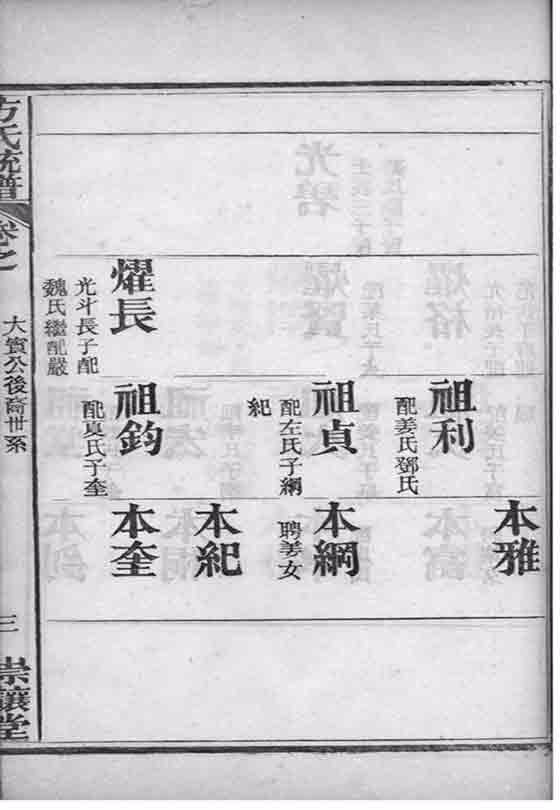 本雅
祖利
配姜氏鄧氏
祖貞
配左氏子綱
紀
本綱
聘姜女
本紀
燿長
光斗長子配
魏氏繼配嚴
祖鈞
配夏氏子奎
本奎
方氏統譜
卷之
大賓公後裔世系
三
崇讓堂